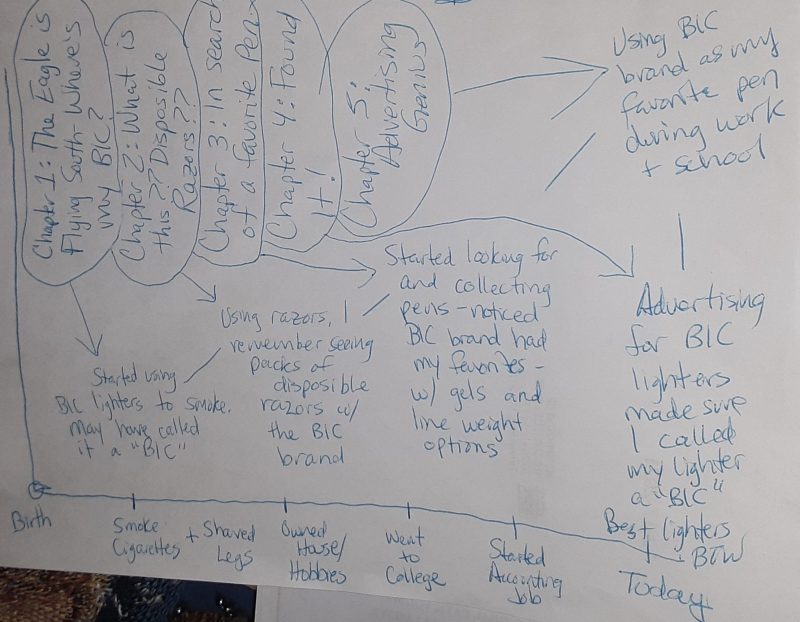 Chapter 1: The Eagle is
Flying South-Where's
my BIC?
Chapter 2: What is
this?? Disposible
Razors??
Chapter 3: In search
of a favorite Pen
Chapter 4: Found
It!
Chapter 5:
Advertising
Genius
Using BIC
brand as my
favorite pen
during work
+ school
Started using
BIC lighters to smoke.
may have called
it a "BIC"
Using razors, I
remember seeing
packs of
disposible
razors w/
the BIC
brand
Started looking for
and collecting
pens - noticed
BIC brand had
my favorites -
w/ gels and
line weight
options
Advertising
for BIC
lighters
made sure
I called
my lighter
a "BIC"
Best lighters
BTW
Birth
Smoke
Cigarettes
+ Shaved
Legs
Owned
House/
Hobbies
Went
to
College
Started
Accounting
Job
Today